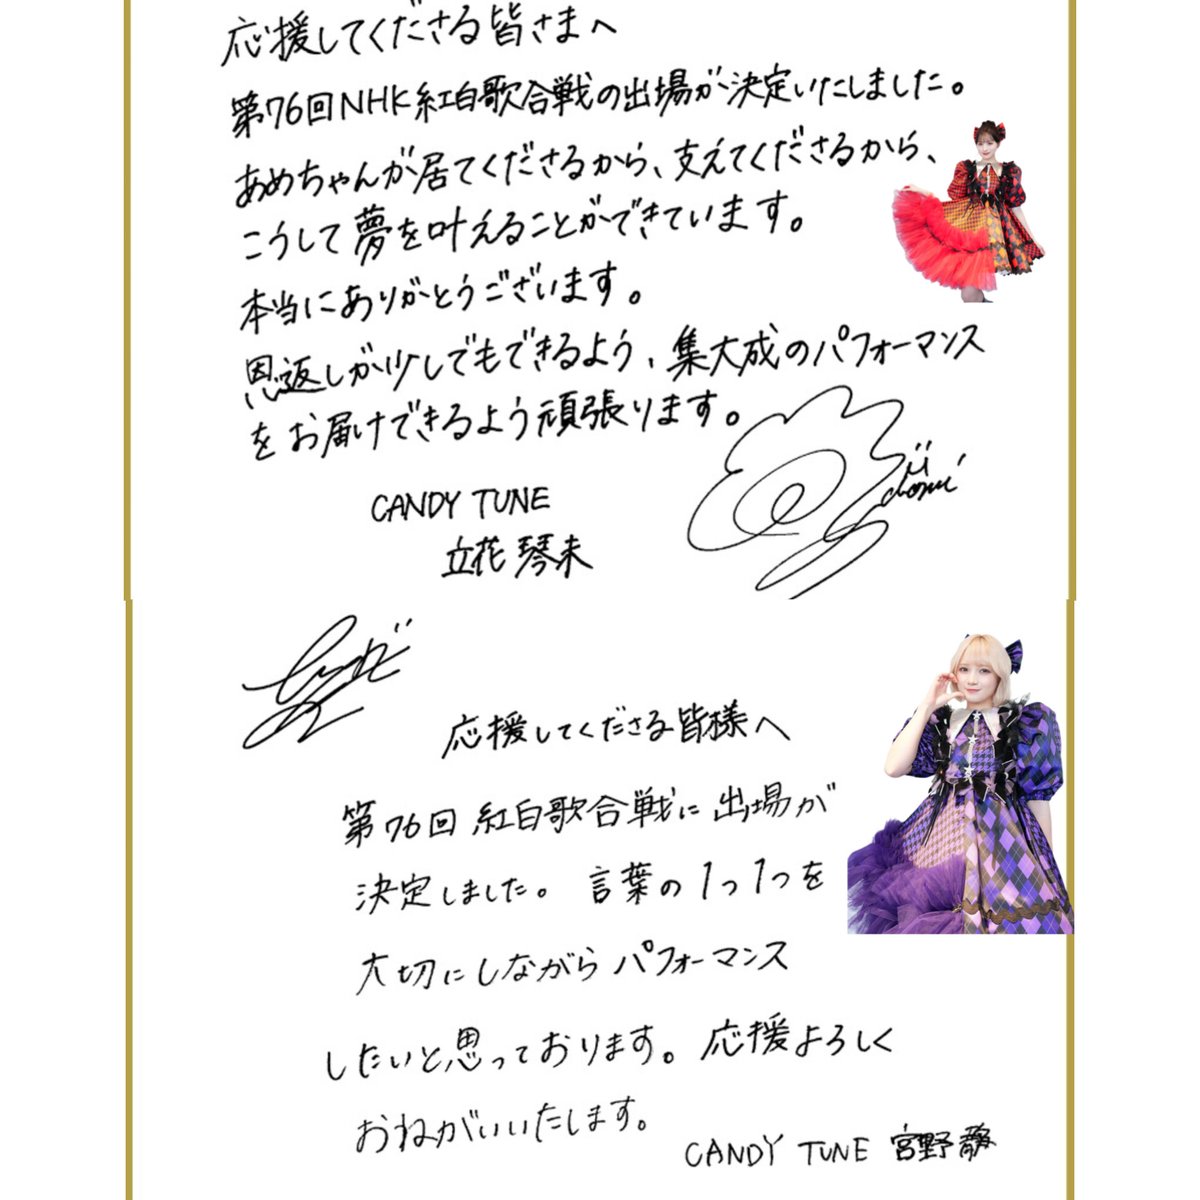 応援してくださる皆さまへ
第76回NHK紅白歌合戦の出場が決定いたしました。
あめちゃんが居てくださるから、支えてくださるから、
こうして夢を叶えることができています。
本当にありがとうございます。
恩返しが少しでもできるよう、集大成のパフォーマンス
をお届けできるよう頑張ります。
CANDY TUNE
立花 琴未
応援してくださる皆様へ
第76回 紅白歌合戦に出場が
決定しました。言葉の1つ1つを
大切にしながらパフォーマンス
したいと思っております。応援よろしく
おねがいいたします。
CANDY TUNE 宮野静